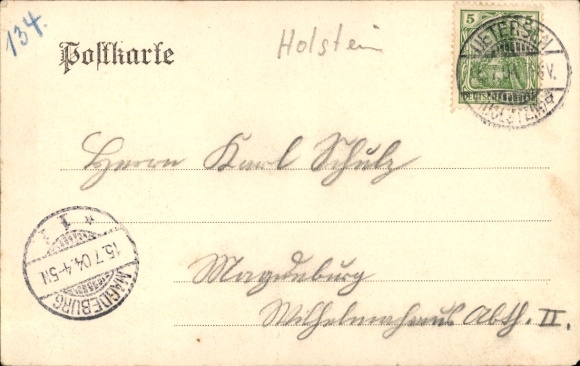 134.
Postkarte
Holstein
5
UETERSEN
V.
(HOLSTEIN)
Herrn Karl Schulz
Magdeburg
Wilhelmhaus Abth. II.
MAGDEBURG
1
15.7.04.4-5N